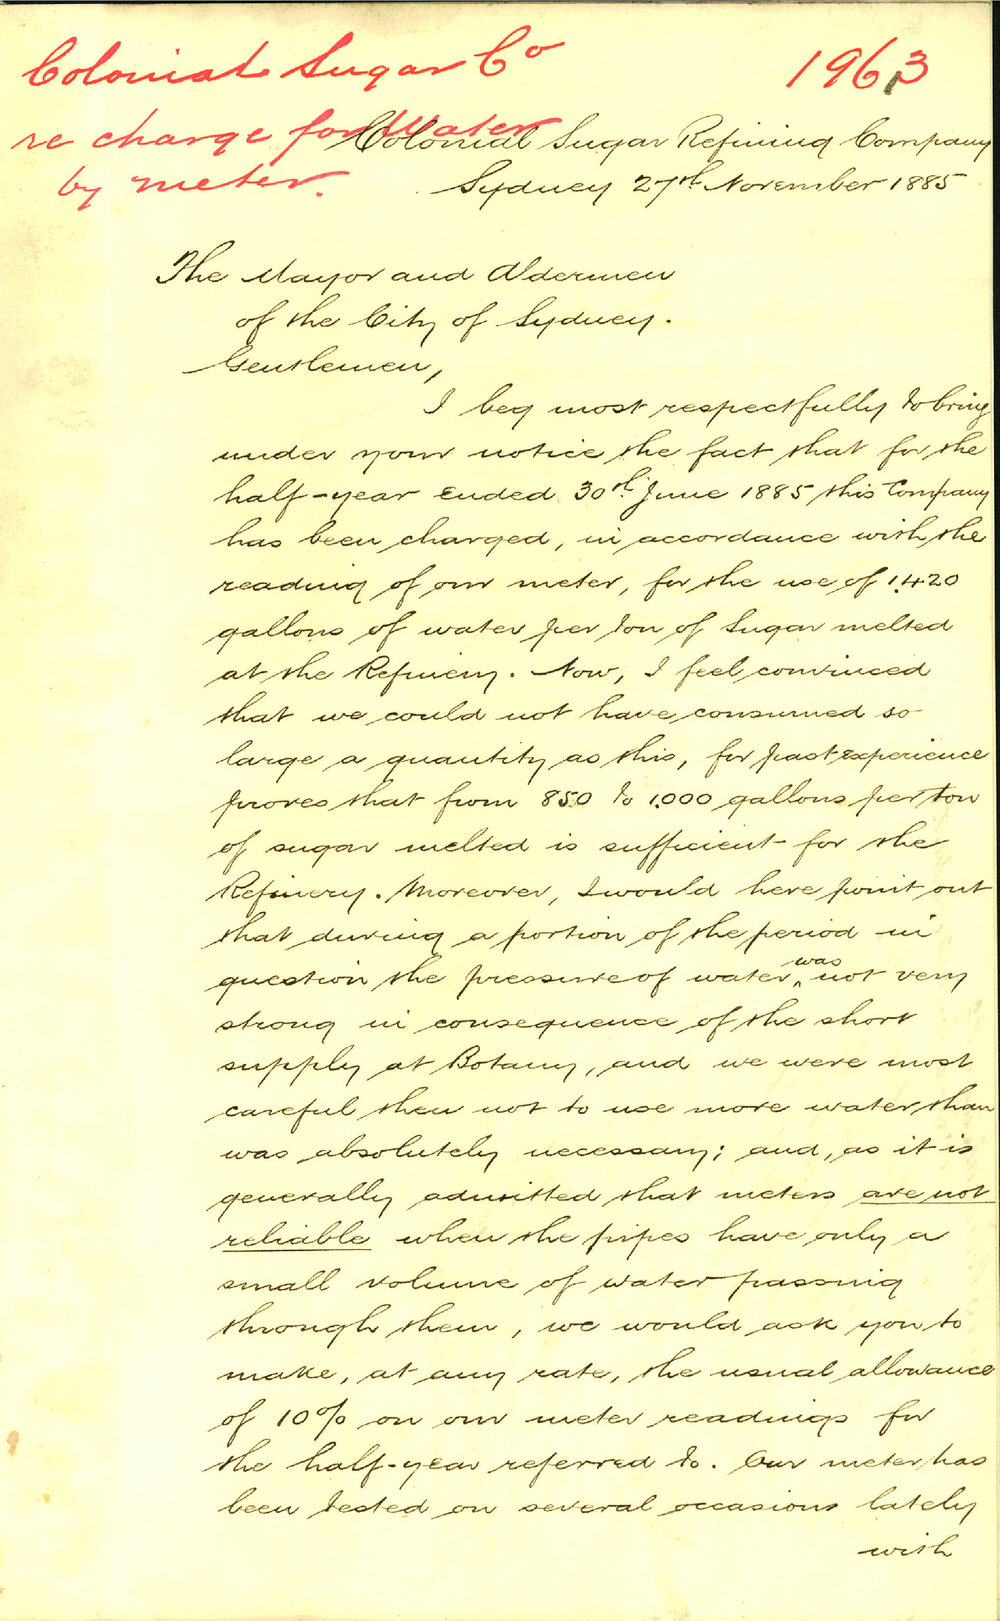 Colonial Sugar Co
1963
re charge for Water
by meter.
Colonial Sugar Refining Company
Sydney 27th November 1885
The Mayor and Aldermen
of the City of Sydney.
Gentlemen,
I beg most respectfully to bring
under your notice the fact that for the
half-year ended 30th June 1885 this Company
has been charged, in accordance with the
reading of our meter, for the use of 1420
gallons of water per ton of Sugar melted
at the Refinery. Now, I feel convinced
that we could not have consumed so
large a quantity as this, for past experience
proves that from 850 to 1000 gallons per ton
of sugar melted is sufficient for the
Refinery. Moreover, I would here point out
that during a portion of the period in
question the pressure of water was not very
strong in consequence of the short
supply at Botany, and we were most
careful then not to use more water than
was absolutely necessary; and, as it is
generally admitted that meters are not
reliable when the pipes have only a
small volume of water passing
through them, we would ask you to
make, at any rate, the usual allowance
of 10% on our meter readings for
the half-year referred to. Our meter has
been tested on several occasions lately
with